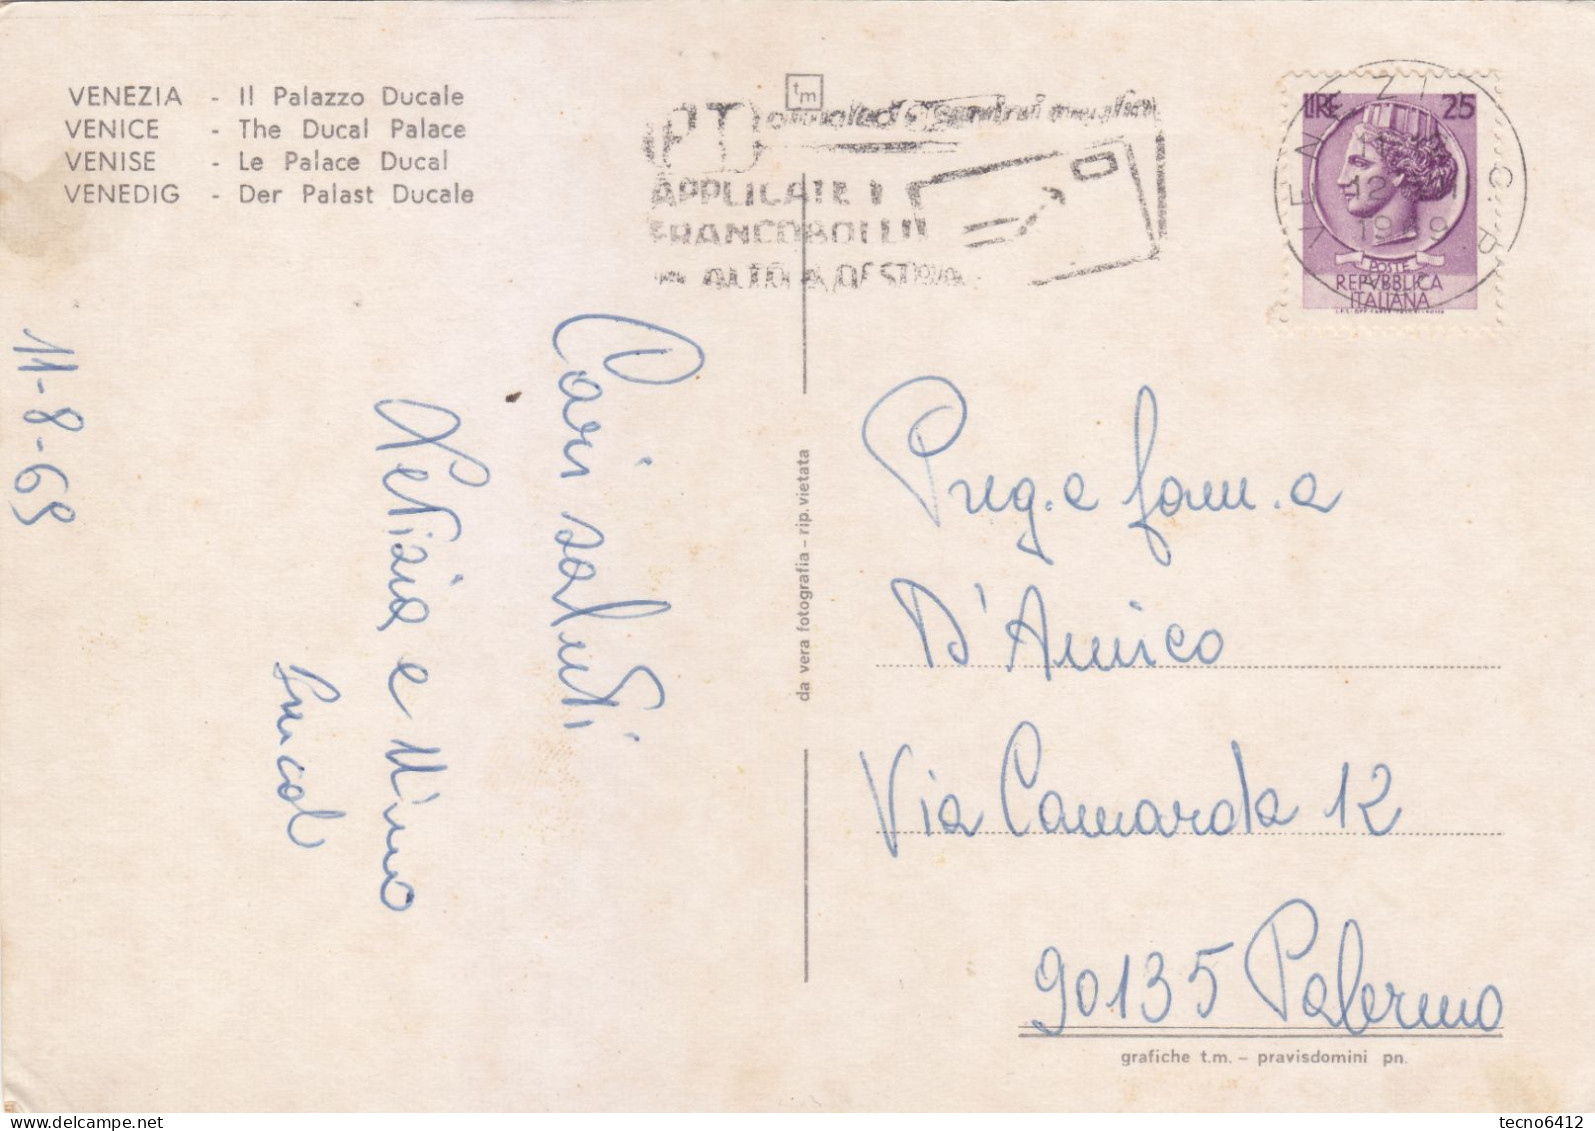 VENEZIA - Il Palazzo Ducale
VENICE - The Ducal Palace
VENISE - Le Palace Ducal
VENEDIG - Der Palast Ducale
tm
PT
APPLICATE I
FRANCOBOLLI
IN ALTO A DESTRA
VENEZIA
C.P.
12
1969
LIRE 25
POSTE
REPVBBLICA
ITALIANA
11-8-69
Cari saluti
Letizia e Nino
da vera fotografia - rip. vietata
Preg. e fam. a
D'Amico
Via Camarda 12
90135 Palermo
grafiche t.m. - pravisdomini pn.
tecno6412